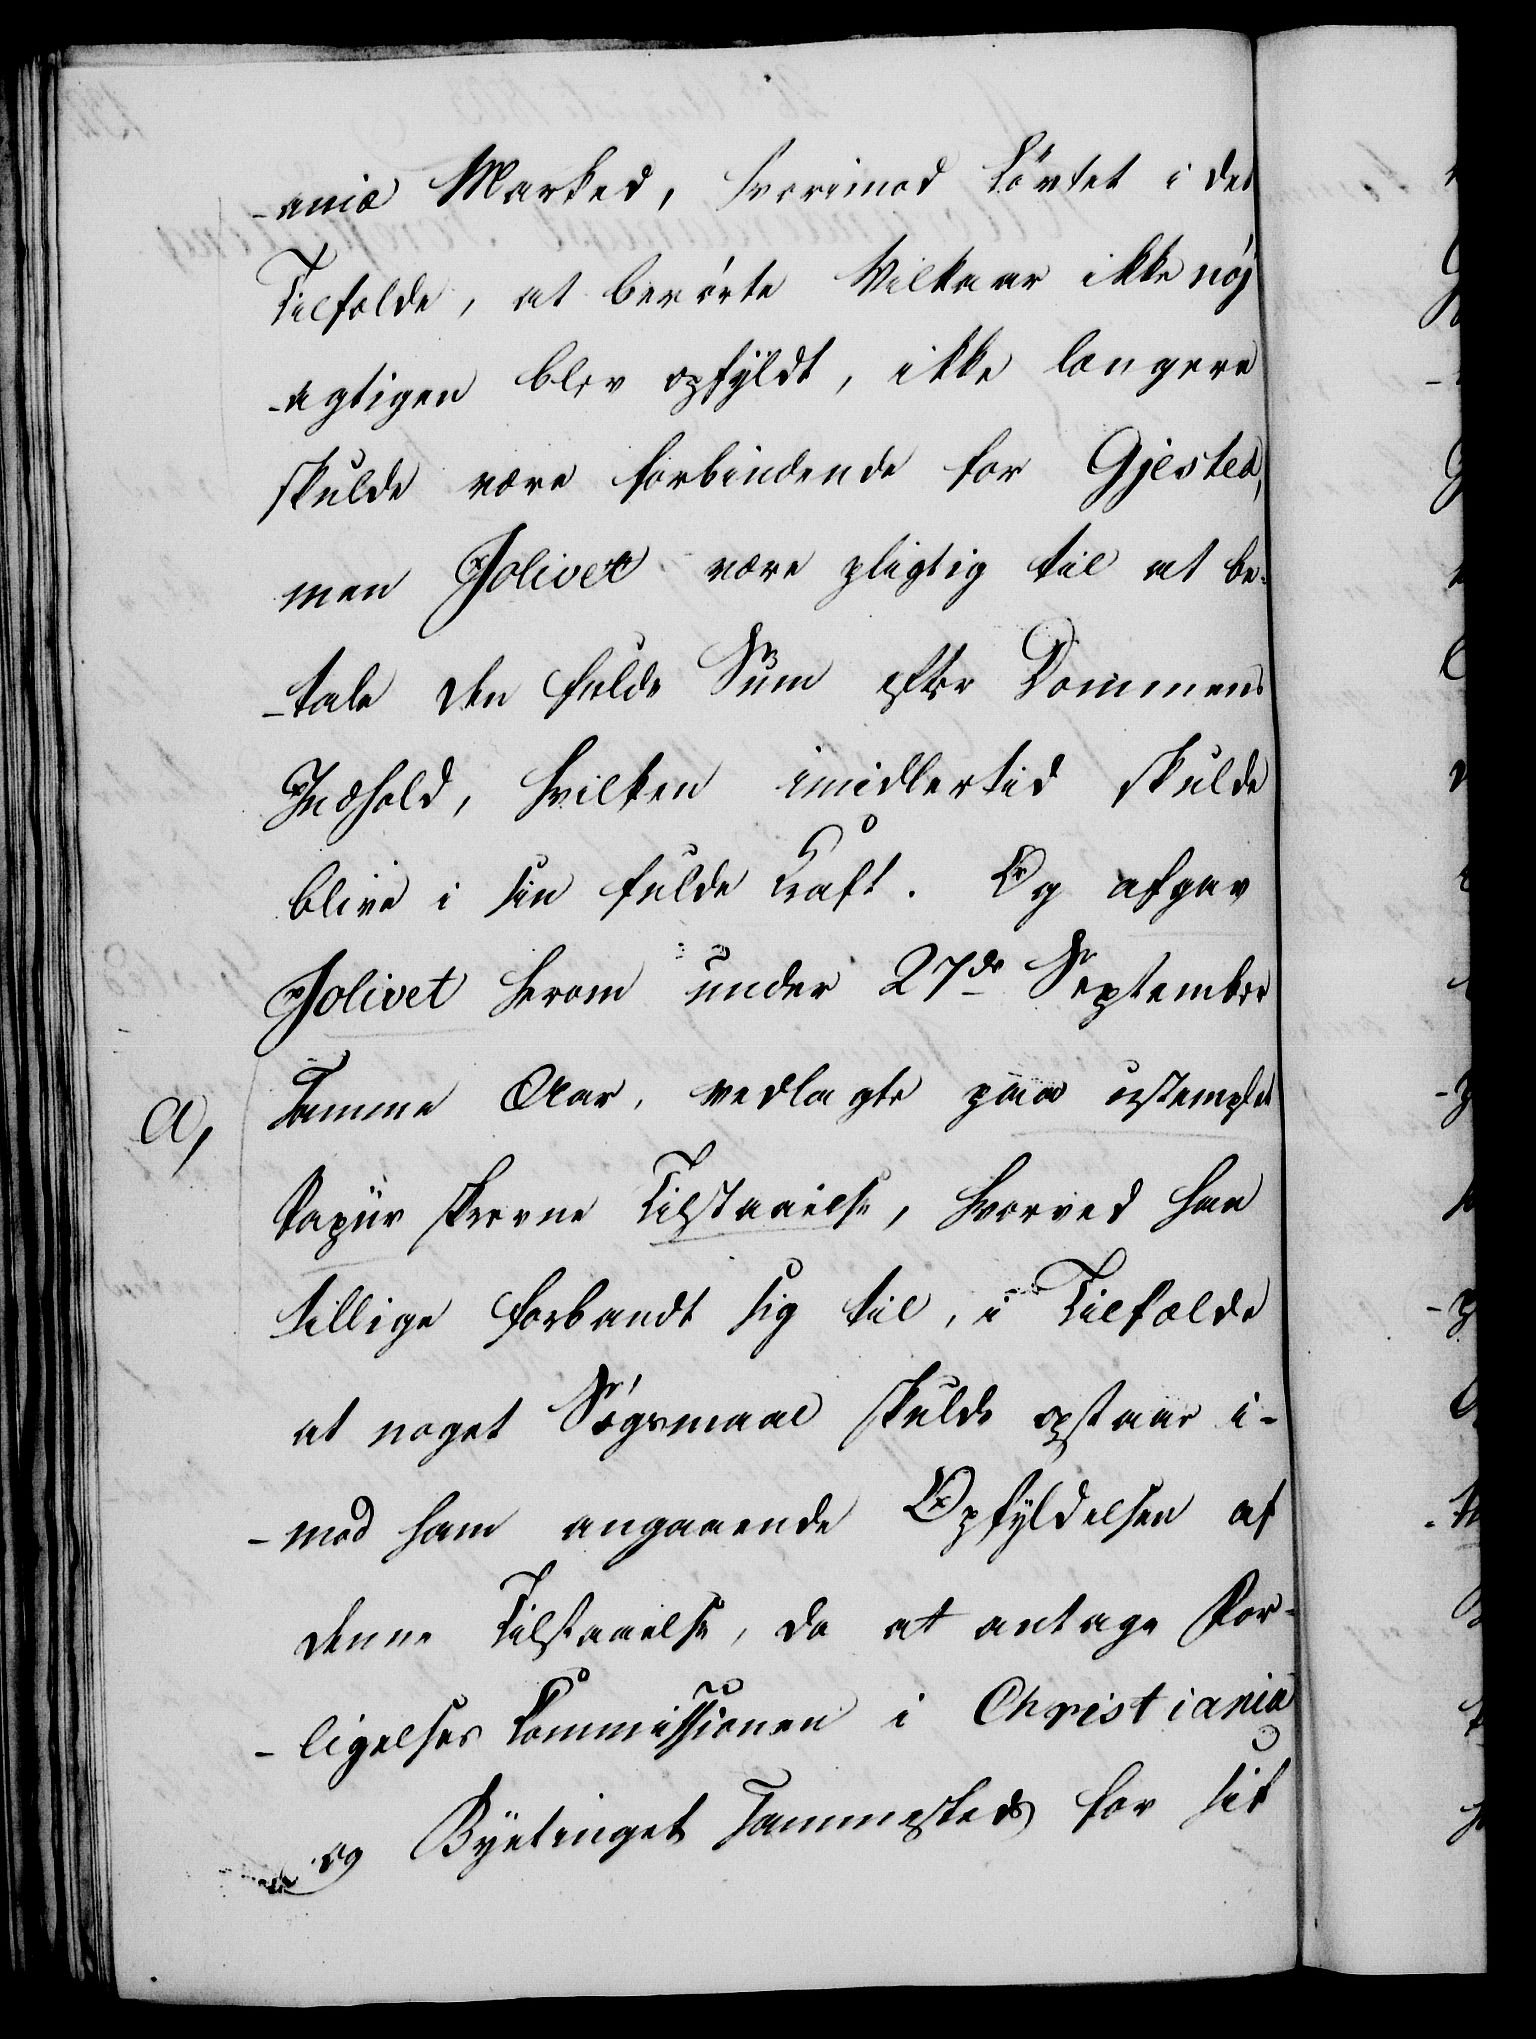 -aniæ Marked, hvorimod Løvtet i det
Tilfælde, at berørte Vilkaar ikke nøj
-agtigen blev opfyldt, ikke længere
skulde være forbindende for Gjested,
men Jolivet være pligtig til at be-
-tale den fulde Sum efter Dommens
Indhold, hvilken imidlertid skulde
blive i sin fulde Kraft. Og afgav
Jolivet herom under 27de September
samme Aar, vedlagte paa ustemplet
a,
Papiir skrevne Tilstaaelse, hvorved han
tillige forbandt sig til, i Tilfælde
at noget Søgsmaal skulde opstaae i-
-mod ham angaaende Opfyldelsen af
denne Tilstaaelse, da at antage For-
-ligelses Commissionen i Christiania
og Byetinget sammesteds for sit